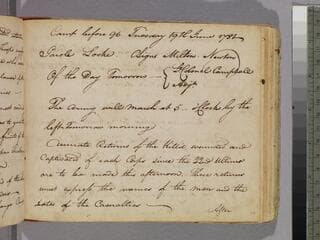 Camp before 96 Tuesday 19th June 1781
Parole Locke — Signs Milton Newton
Of the Day Tomorrow — Lt Colonel Campbell
The Army will March at 5 o Clock by the
left Tomorrow morning
Accurate Returns of the Killed wounded and
Captured of each Corps since the 22nd Ultimo
are to be made this afternoon. These returns
must express the names of the men and the
dates of the Casualties —
After